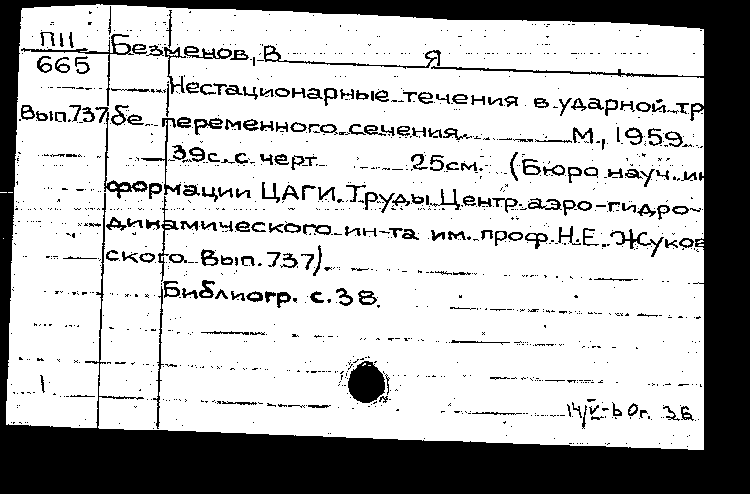 ПII Безменов, В Я
665
Нестационарные течения в ударной тр
Вып.737 бе переменного сечения. М., 1959
39с. с черт 25см. (Бюро науч. ин
формации ЦАГИ. Труды Центр. аэро-гидро-
динамического ин-та им. проф. Н.Е. Жуков
ского. Вып. 737).
Библиогр. с. 38.
1
36